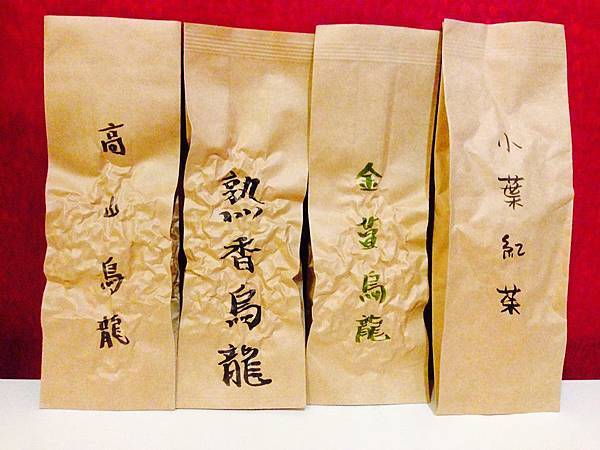 高山烏龍
熟香烏龍
金萱烏龍
小葉紅茶